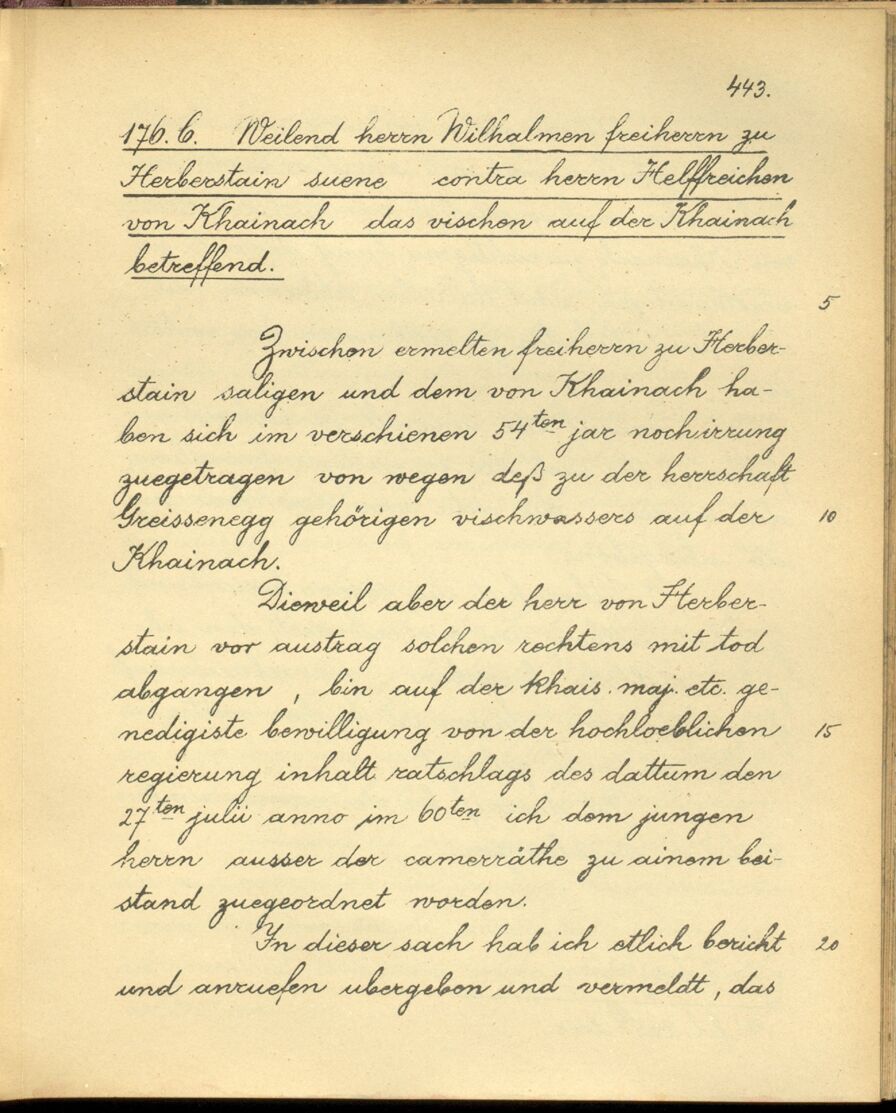 443.
176. 6. Weilend herrn Wilhalmen freiherrn zu
Herberstain suene contra herrn Helffreichen
von Khainach das vischen auf der Khainach
betreffend.
5
Zwischen ermelten freiherrn zu Herber-
stain saligen und dem von Khainach ha-
ben sich im verschienen 54ten jar noch irrung
zuegetragen von wegen deß zu der herrschaft
Greissenegg gehörigen vischwassers auf der 10
Khainach.
Dieweil aber der herr von Herber-
stain vor austrag solchen rechtens mit tod
abgangen, bin auf der khais. maj. etc. ge-
nedigiste bewilligung von der hochloeblichen 15
regierung inhalt ratschlags des dattum den
27ten julii anno im 60ten ich dem jungen
herrn ausser der camerräthe zu ainem bei-
stand zuegeordnet worden.
In dieser sach hab ich etlich bericht 20
und anruefen ubergeben und vermeldt, das